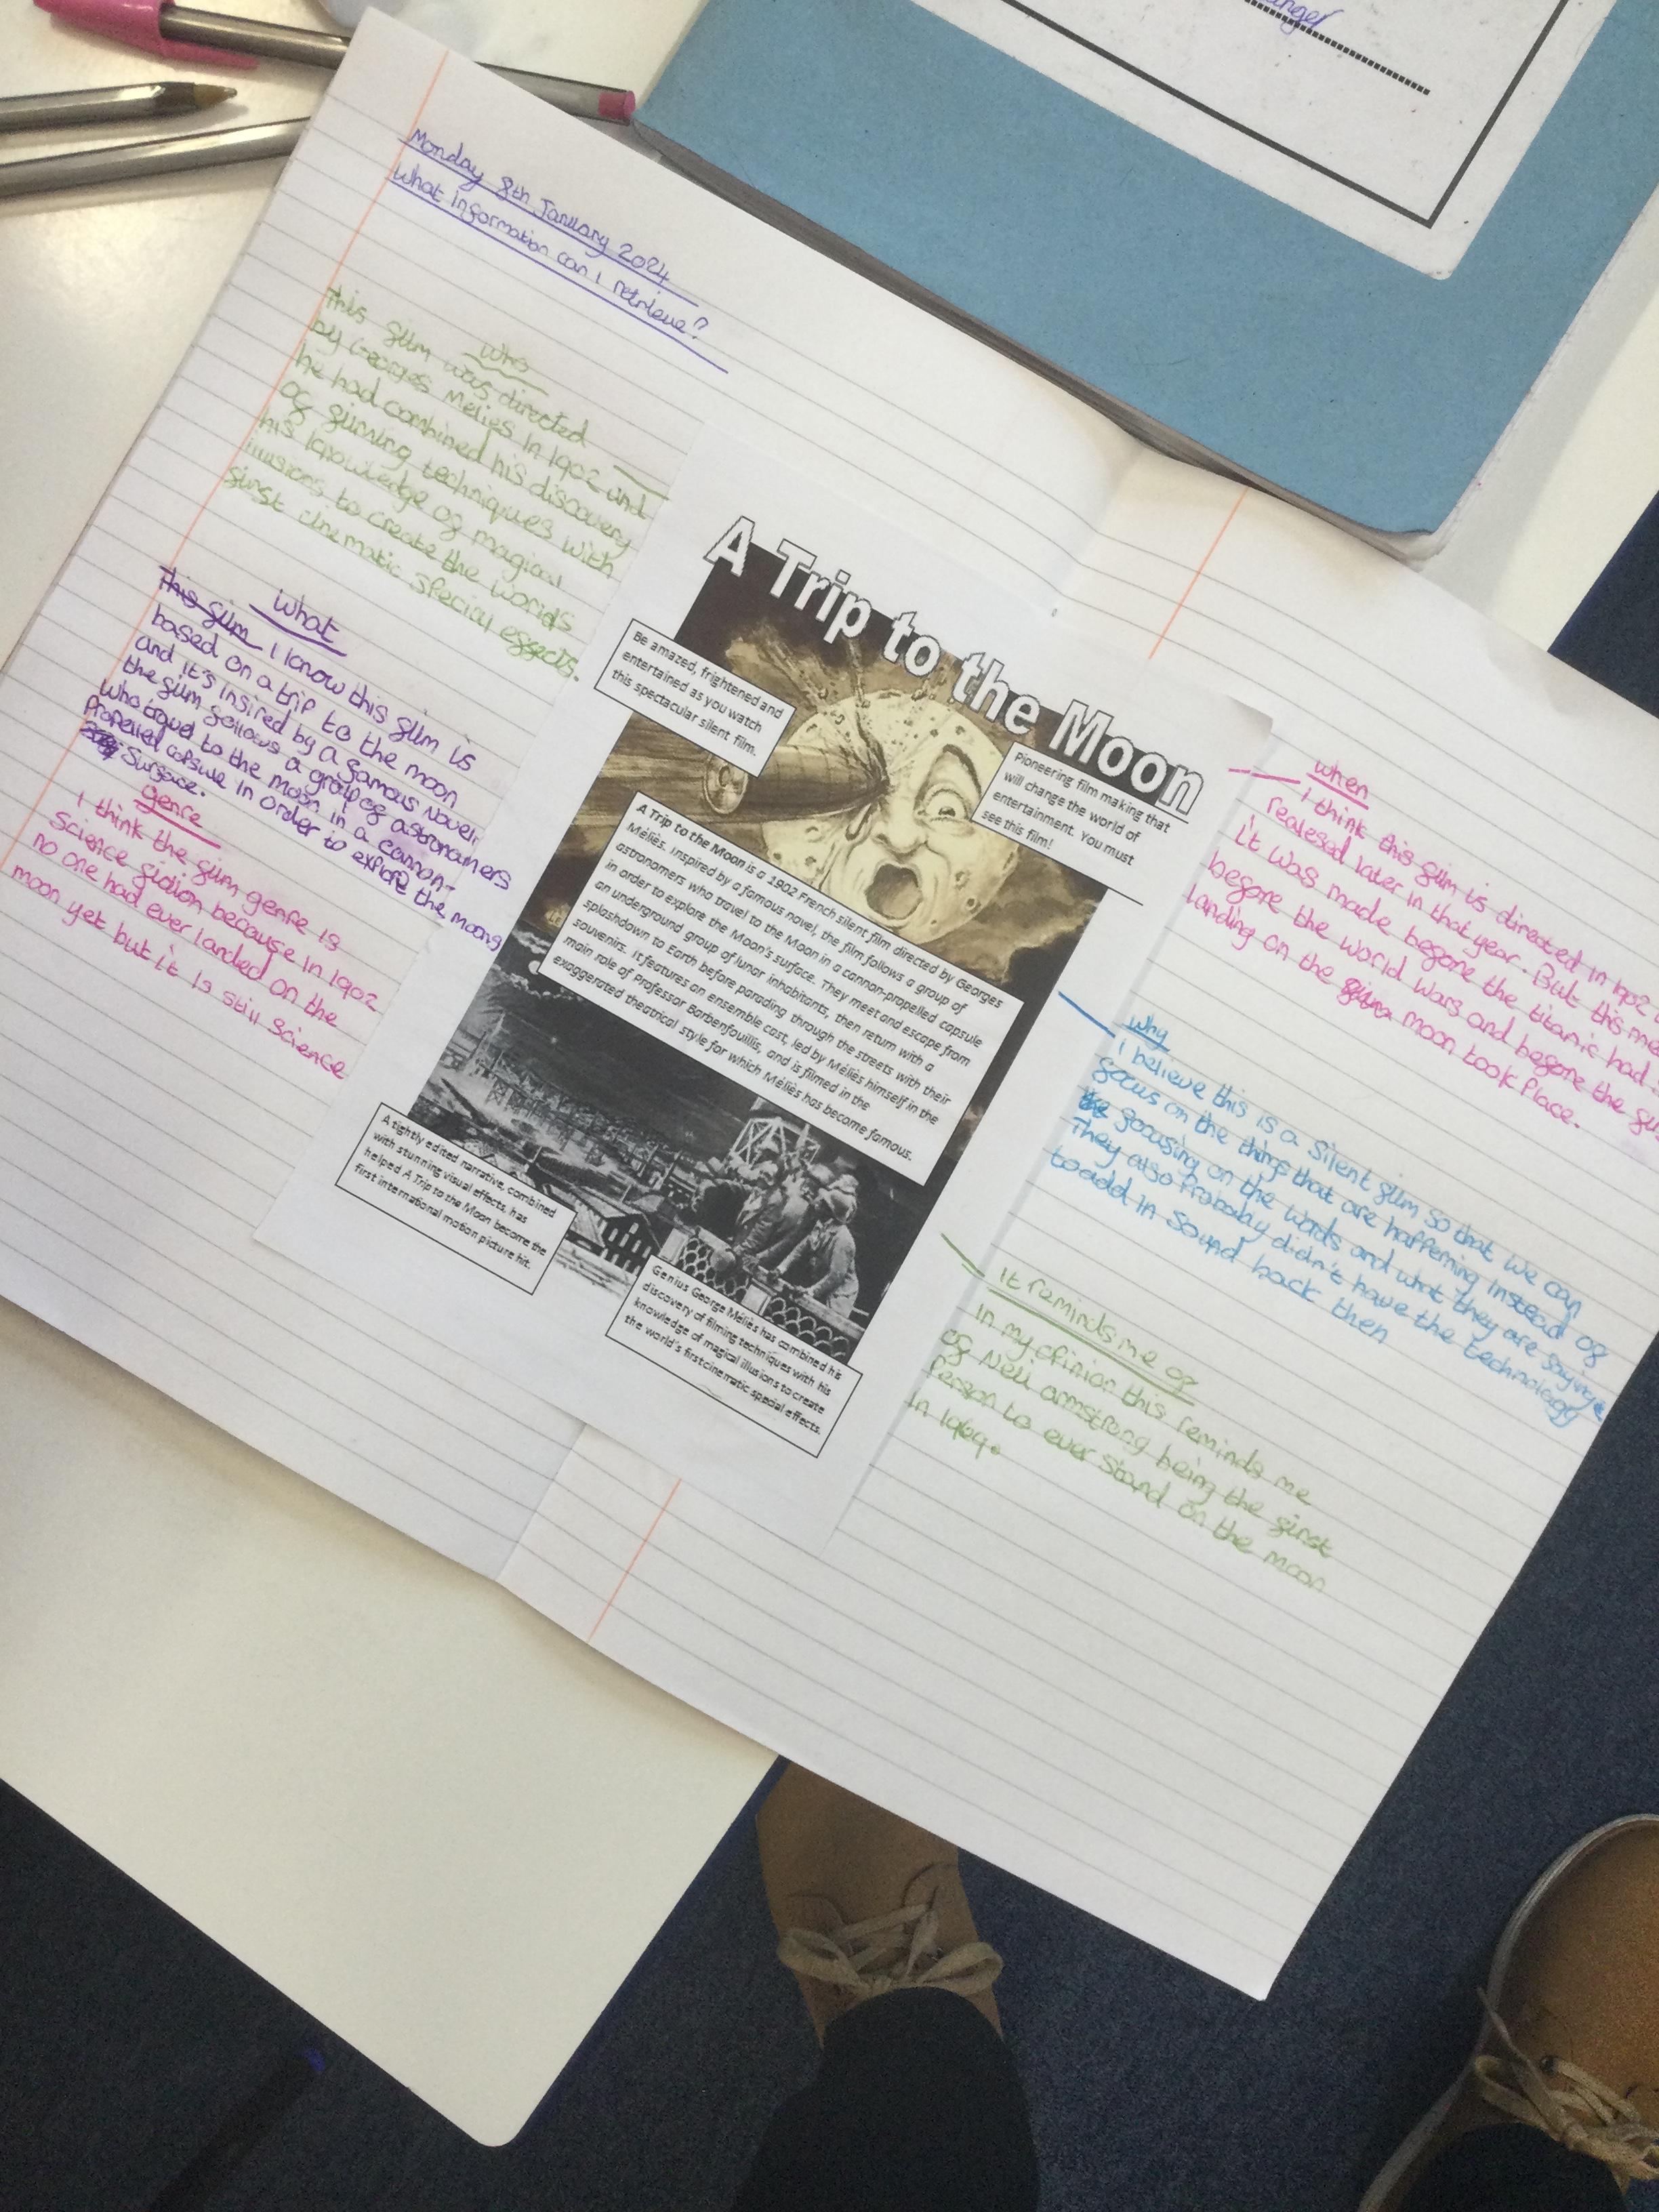 anger
Monday 8th January 2024
What Information can I retrieve?
Who
This film was directed
by Georges Melies In 1902 und
he had combined his discovery
of filming techniques with
his knowledge of magical
illusions to create the worlds
first cinematic special effects.
What
This film I know this film is
based on a trip to the moon
and it's insired by a famous Novel.
the film follows a group of astronomers
who travel to the moon in a cannon-
Propelled capsule in order to explore the moons
Surface.
genre
I think the film genre is
Science fiction because in 1902
no one had ever landed on the
moon yet but it is still science
A Trip to the Moon
Be amazed, frightened and
entertained as you watch
this spectacular silent film.
Pioneering film making that
will change the world of
entertainment. You must
see this film!
A Trip to the Moon is a 1902 French silent film directed by Georges
Méliès. Inspired by a famous novel, the film follows a group of
astronomers who travel to the Moon in a cannon-propelled capsule
in order to explore the Moon's surface. They meet and escape from
an underground group of lunar inhabitants, then return with a
splashdown to Earth before parading through the streets with their
souvenirs. It features an ensemble cast, led by Méliès himself in the
main role of Professor Barbenfouillis, and is filmed in the
exaggerated theatrical style for which Méliès has become famous.
A tightly edited narrative, combined
with stunning visual effects, has
helped A Trip to the Moon become the
first international motion picture hit.
Genius George Méliès has combined his
discovery of filming techniques with his
knowledge of magical illusions to create
the world's first cinematic special effects.
When
I think this film is directed in 1902
realesed later in that year. But this me
it was made before the titanic had
before the world wars and before the
landing on the moon took Place.
Why
I believe this is a Silent film so that we can
focus on the things that are happening instead of
the focusing on the words and what they are saying.
They also Probably didn't have the technology
to add in Sound back then
It reminds me of
In my opinion this reminds me
of Neil armstrong being the first
Person to ever stand on the moon
In 1969.